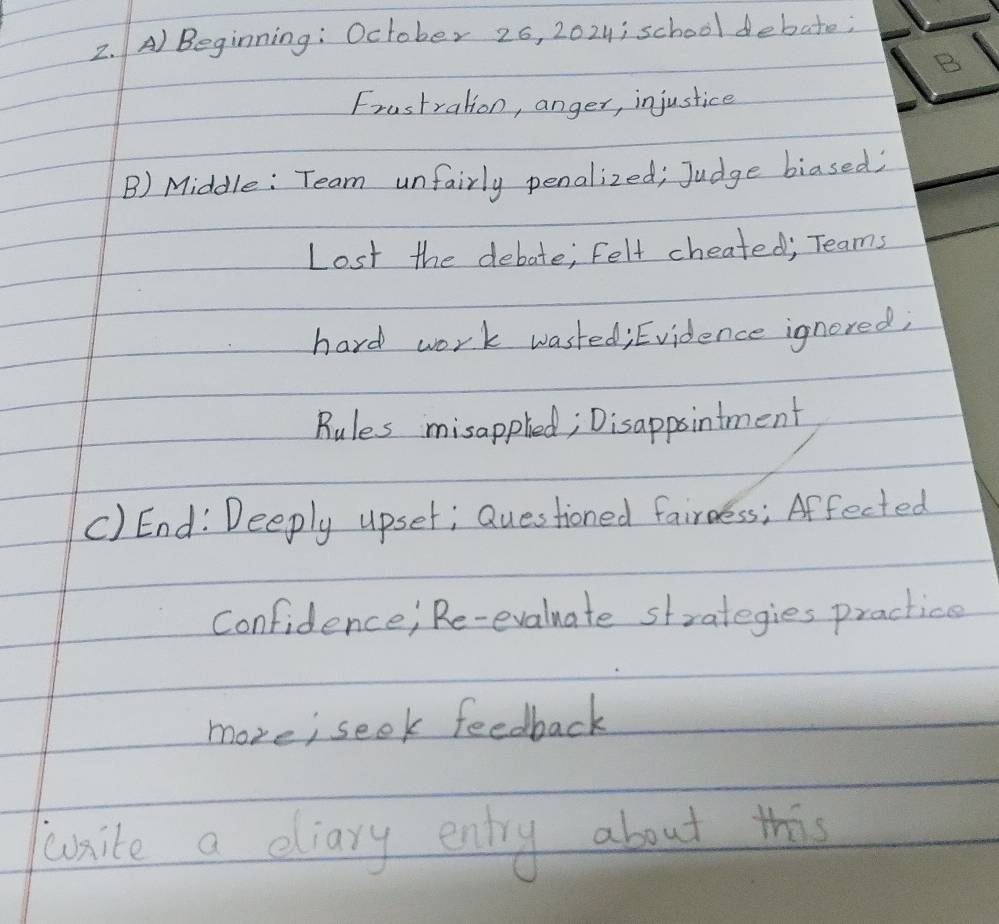 2. A) Beginning: October 26, 2024; school debate;
Frustration, anger, injustice
B) Middle: Team unfairly penalized; Judge biased;
Lost the debate; Felt cheated; Teams
hard work wasted; Evidence ignored;
Rules misapplied; Disappointment
C) End: Deeply upset; Questioned fairness; Affected
Confidence; Re-evaluate strategies practice
more; seek feedback
write a diary entry about this
B